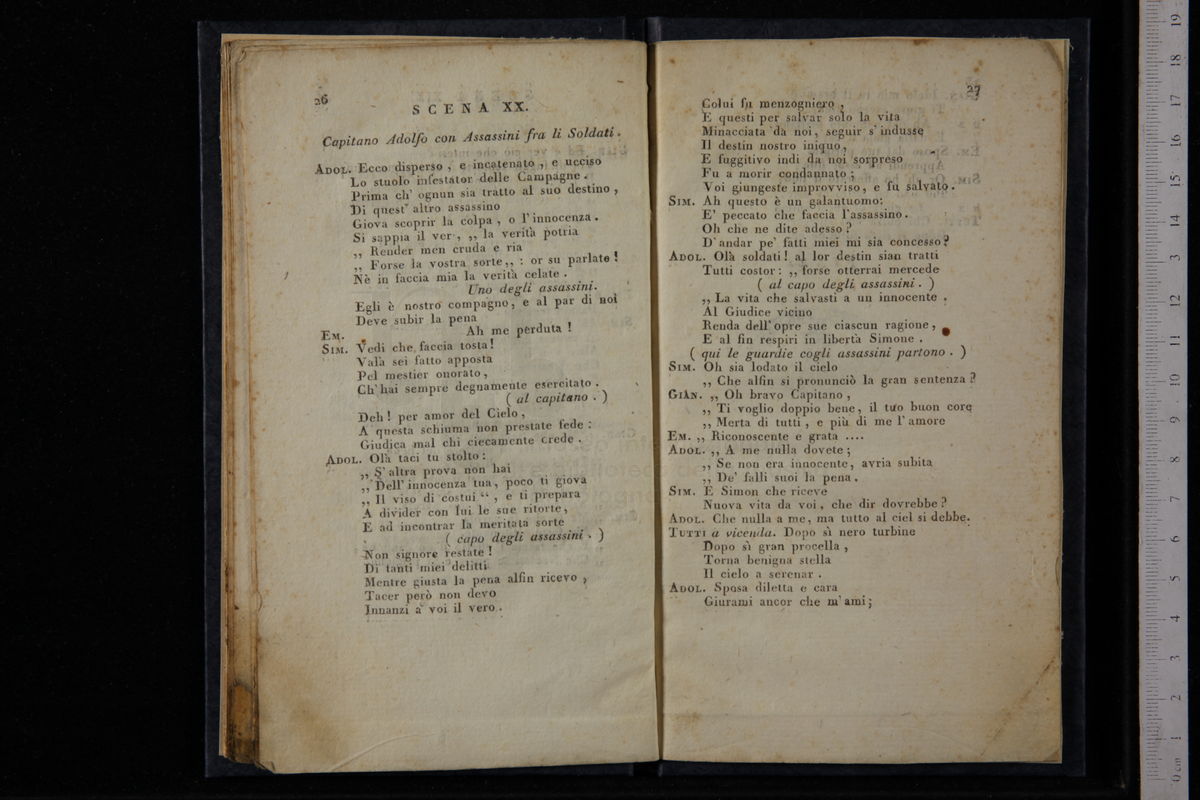 26
SCENA XX.
Capitano Adolfo con Assassini fra li Soldati.
ADOL. Ecco disperso, e incatenato, e ucciso
Lo stuolo infestator delle Campagne.
Prima ch' ognun sia tratto al suo destino,
Di quest' altro assassino
Giova scoprir la colpa, o l'innocenza.
Si sappia il ver, ,, la verità potria
,, Render men cruda e ria
,, Forse la vostra sorte,, : or su parlate!
Nè in faccia mia la verità celate.
Uno degli assassini.
Egli è nostro compagno, e al par di noi
Deve subir la pena
EM. Ah me perduta!
SIM. Vedi che faccia tosta!
Valà sei fatto apposta
Pel mestier onorato,
Ch' hai sempre degnamente esercitato.
( al capitano. )
Deh! per amor del Cielo,
A questa schiuma non prestate fede:
Giudica mal chi ciecamente crede.
ADOL. Olà taci tu stolto:
,, S' altra prova non hai
,, Dell' innocenza tua, poco ti giova
,, Il viso di costui “, e ti prepara
A divider con lui le sue ritorte,
E ad incontrar la meritata sorte
( capo degli assassini. )
Non signore restate!
Di tanti miei delitti
Mentre giusta la pena alfin ricevo,
Tacer però non devo
Innanzi a voi il vero.
27
Colui fu menzogniero,
E questi per salvar solo la vita
Minacciata da noi, seguir s' indusse
Il destin nostro iniquo,
E fuggitivo indi da noi sorpreso
Fu a morir condannato;
Voi giungeste improvviso, e fu salvato.
SIM. Ah questo è un galantuomo:
E' peccato che faccia l'assassino.
Oh che ne dite adesso?
D' andar pe' fatti miei mi sia concesso?
ADOL. Olà soldati! al lor destin sian tratti
Tutti costor: ,, forse otterrai mercede
( al capo degli assassini. )
,, La vita che salvasti a un innocente.
Al Giudice vicino
Renda dell' opre sue ciascun ragione,
E al fin respiri in libertà Simone.
( qui le guardie cogli assassini partono. )
SIM. Oh sia lodato il cielo
,, Che alfin si pronunciò la gran sentenza?
GIAN. ,, Oh bravo Capitano,
,, Ti voglio doppio bene, il tuo buon core
,, Merta di tutti, e più di me l' amore
EM. ,, Riconoscente e grata ....
ADOL. ,, A me nulla dovete;
,, Se non era innocente, avria subita
,, De' falli suoi la pena.
SIM. E Simon che riceve
Nuova vita da voi, che dir dovrebbe?
ADOL. Che nulla a me, ma tutto al ciel si debbe.
TUTTI a vicenda. Dopo sì nero turbine
Dopo sì gran procella,
Torna benigna stella
Il cielo a serenar.
ADOL. Sposa diletta e cara
Giurami ancor che m' ami;
0 cm 1 2 3 4 5 6 7 8 9 10 11 12 13 14 15 16 17 18 19